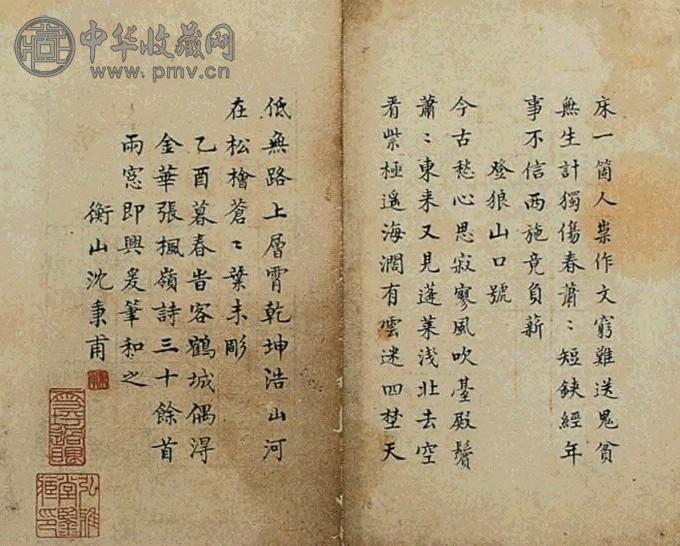 中华收藏网
www.pmv.cn
床一箇人祟作文窮難送鬼貧
無生計獨傷春蕭〻短鋏經年
事不信西施竟負薪
登狼山口號
今古愁心思寂寥風吹臺殿鬢
蕭〻東来又見蓬莱浅北去空
看紫極遥海濶有雲迷四埜天
低無路上層霄乾坤浩〻山河
在松檜蒼〻葉未彫
乙酉暮春旹客鶴城偶得
金華張楓嶺詩三十餘首
雨窓即興爰筆和之
衡山沈秉甫